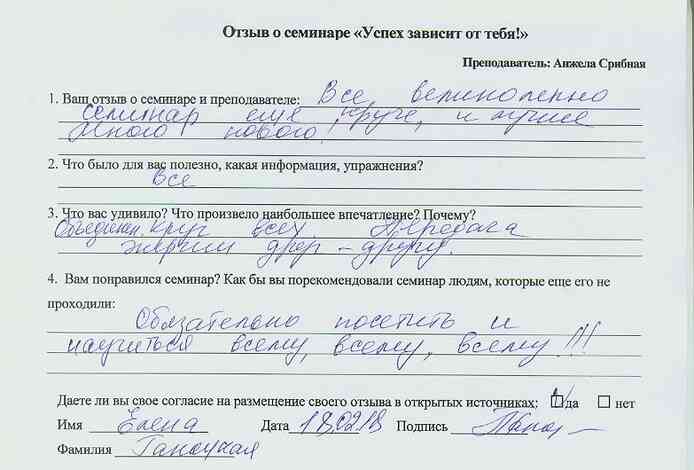 Отзыв о семинаре «Успех зависит от тебя!»
Преподаватель: Анжела Срибная
1. Ваш отзыв о семинаре и преподавателе: Все великолепно
семинар еще круче, и лучше
много нового!
2. Что было для вас полезно, какая информация, упражнения?
Все
3. Что вас удивило? Что произвело наибольшее впечатление? Почему?
круг всех. Передача
энергии друг - другу.
4. Вам понравился семинар? Как бы вы порекомендовали семинар людям, которые еще его не
проходили:
Обязательно посетить и
научиться всему, всему, всему!!!
Даете ли вы свое согласие на размещение своего отзыва в открытых источниках: да нет
Имя Елена Дата 18.02.18 Подпись
Фамилия